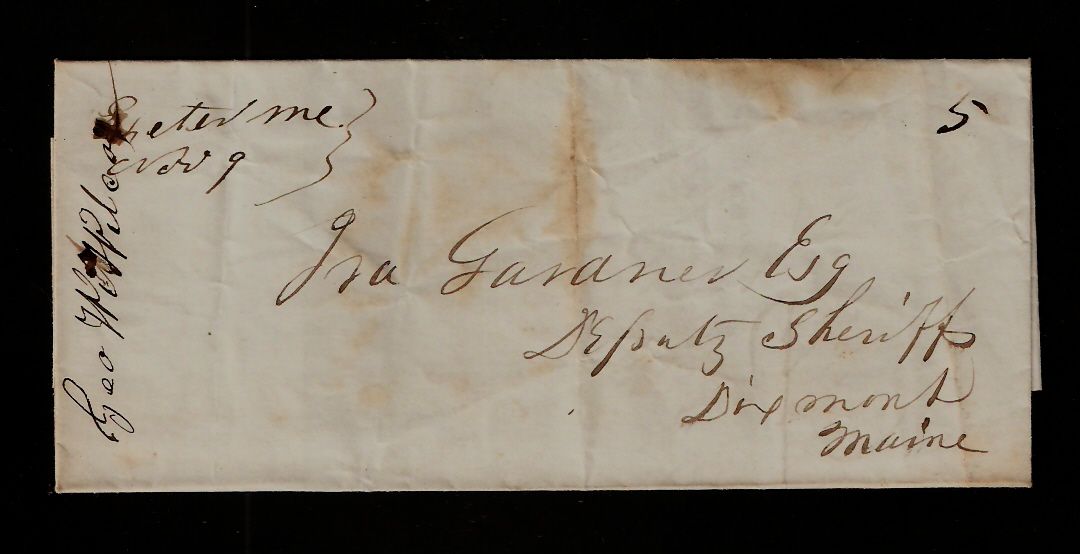 Exeter me.
Nov 9
5
Ira Gardner Esq
Deputy Sheriff
Dixmont
Maine
Geo W